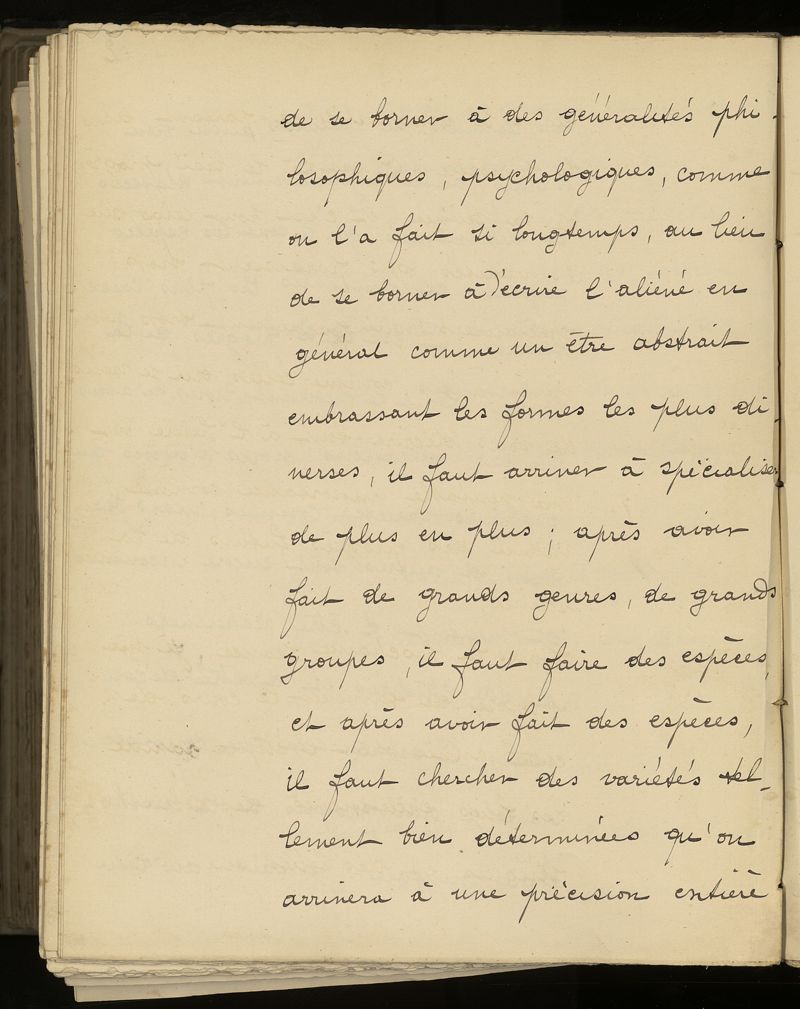 de se borner à des généralités phi-
losophiques, psychologiques, comme
on l'a fait si longtemps, au lieu
de se borner à décrire l'aliéné en
général comme un être abstrait
embrassant les formes les plus di-
verses, il faut arriver à spécialiser
de plus en plus; après avoir
fait de grands genres, de grands
groupes, il faut faire des espèces,
et après avoir fait des espèces,
il faut chercher des variétés tel-
lement bien déterminées qu'on
arrivera à une précision entière